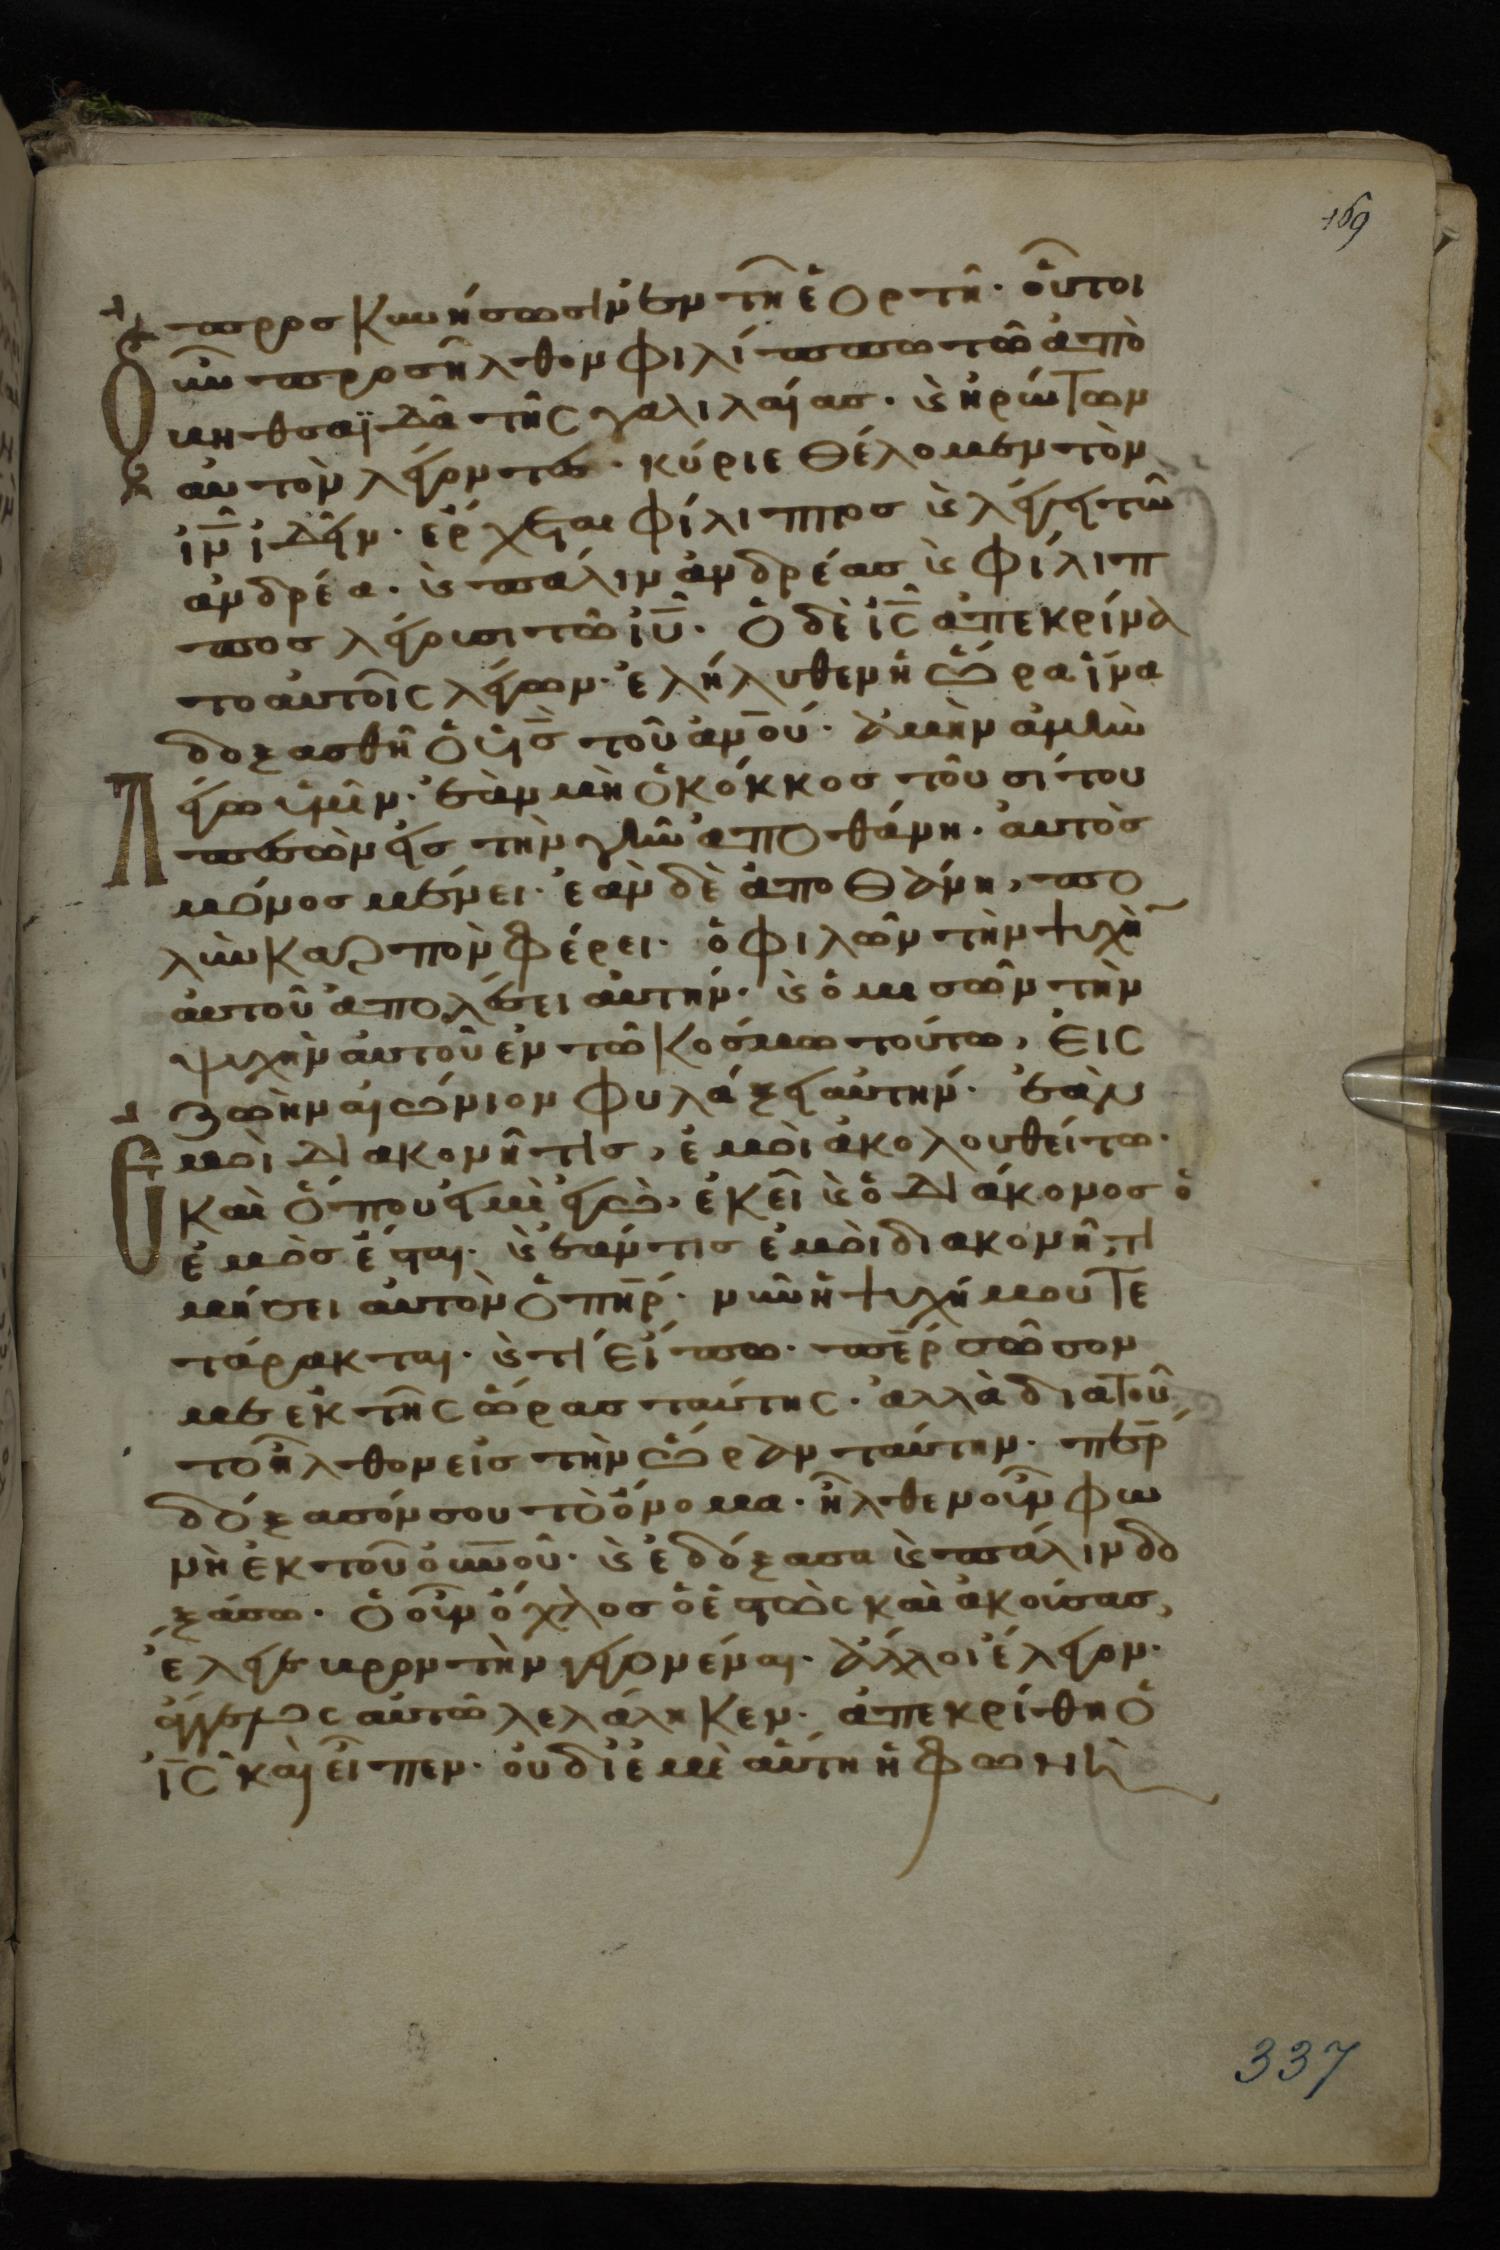 169
προσκυνήσωσιν ἐν τῇ ἑορτῇ· οὗτοι
οὖν προσῆλθον φιλίππω τῶ ἀπὸ
βηθσαϊδὰ τῆς γαλιλαίας· κ ἠρώτων
αὐτὸν λέγοντες· κύριε θέλομεν τὸν
ιν ἰδεῖν· ἔρχεται φίλιππος κ λέγει τῶ
ἀνδρέα· κ πάλιν ἀνδρέας κ φίλιπ
πος λέγουσι τῶ ιυ· ὁ δὲ ις ἀπεκρίνα
το αὐτοῖς λέγων· ἐλήλυθεν ἡ ὥρα ἵνα
δοξασθῆ ὁ υς τοῦ ανου· ἀμὴν ἀμὴν
λέγω ὑμῖν· ἐὰν μὴ ὁ κόκκος τοῦ σίτου
πεσὼν εἰς τὴν γῆν ἀποθάνη· αὐτὸς
μόνος μένει· ἐὰν δὲ ἀποθάνη, πο
λὺν καρπὸν φέρει· ὁ φιλῶν τὴν ψυχὴν
αὐτοῦ ἀπολέσει αὐτήν· κ ὁ μισῶν τὴν
ψυχὴν αὐτοῦ ἐν τῶ κόσμω τούτω, εἰς
ζωὴν αἰώνιον φυλάξει αὐτήν· ἐὰν
ἐμοὶ διακονῆ τις, ἐμοὶ ἀκολουθείτω·
καὶ ὅπου εἰμὶ ἐγὼ, ἐκεῖ κ ὁ διάκονος ὁ
ἐμὸς ἔσται· κ ἐάν τις ἐμοὶ διακονῆ, τι
μήσει αὐτὸν ὁ πηρ· νῦν ἡ ψυχή μου τε
τάρακται· κ τί εἴπω· περ σῶσον
με ἐκ τῆς ὥρας ταύτης· ἀλλὰ διὰ τοῦ
το ἦλθον εἰς τὴν ὥραν ταύτην· περ
δόξασόν σου τὸ ὄνομα· ἦλθεν οὖν φω
νὴ ἐκ τοῦ οὐνου· κ ἐδόξασα κ πάλιν δο
ξάσω· ὁ οὖν ὄχλος ὁ ἑστὼς καὶ ἀκούσας,
ἔλεγε βροντὴν γεγονέναι· ἄλλοι ἔλεγον·
ἄγγελος αὐτῶ λελάληκεν· ἀπεκρίθη ὁ
ις καὶ εἶπεν· οὐ δι' ἐμὲ αὕτη ἡ φωνὴ
337